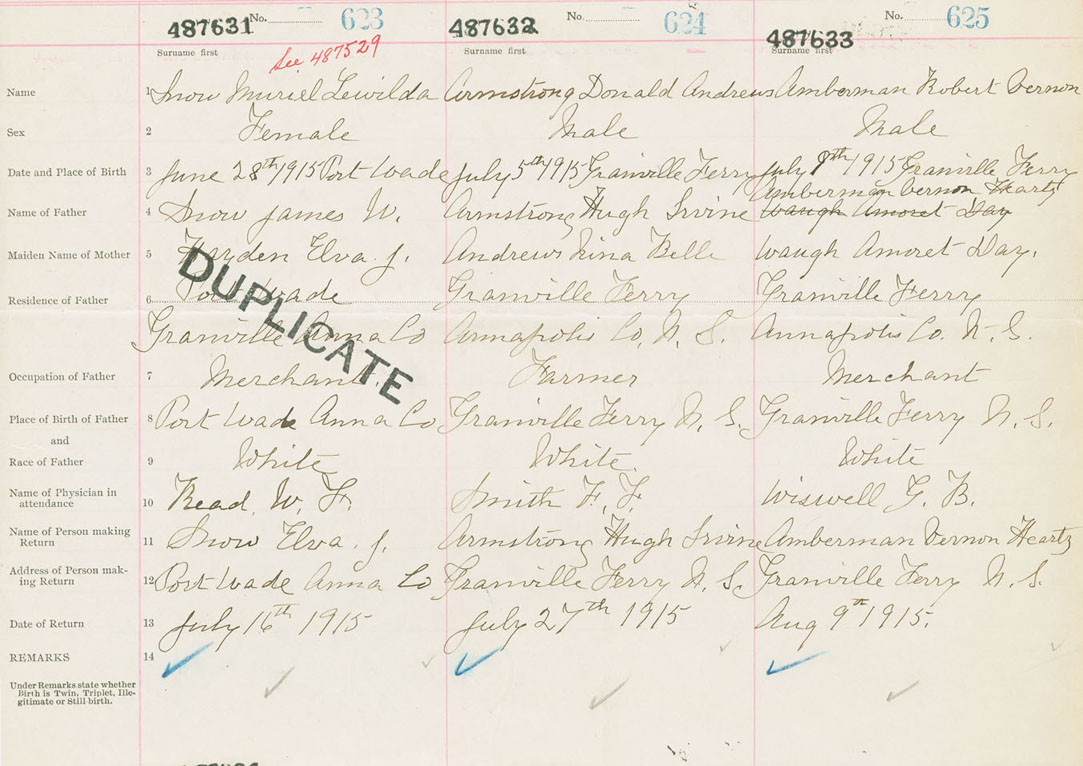 487631 No. 623 487632 No. 624 487633 No. 625
Surname first Surname first Surname first
See 487529
Name 1 Snow Muriel Lewilda Armstrong Donald Andrews Amberman Robert Vernon
Sex 2 Female Male Male
Date and Place of Birth 3 June 28th 1915 Port Wade July 5th 1915 Granville Ferry July 9th 1915 Granville Ferry
Amberman Vernon Heartz
Name of Father 4 Snow James W. Armstrong Hugh Irvine Waugh Amoret Day
Maiden Name of Mother 5 Hayden Elva J. Andrews Nina Belle Waugh Amoret Day.
DUPLICATE
Residence of Father 6 Port Wade Granville Ferry Granville Ferry
Granville Anna Co Annapolis Co, N. S. Annapolis Co. N. S.
Occupation of Father 7 Merchant. Farmer Merchant
Place of Birth of Father 8 Port Wade Anna Co Granville Ferry N. S. Granville Ferry N. S.
and
Race of Father 9 White White White
Name of Physician in attendance 10 Read. W. F. Smith F. F. Wiswell G. B.
Name of Person making Return 11 Snow Elva. J. Armstrong Hugh Irvine Amberman Vernon Heartz
Address of Person making Return 12 Port Wade Anna Co Granville Ferry N. S. Granville Ferry N. S.
Date of Return 13 July 16th 1915 July 27th 1915 Aug 9th 1915.
REMARKS 14
Under Remarks state whether
Birth is Twin, Triplet, Ille-
gitimate or Still-birth.